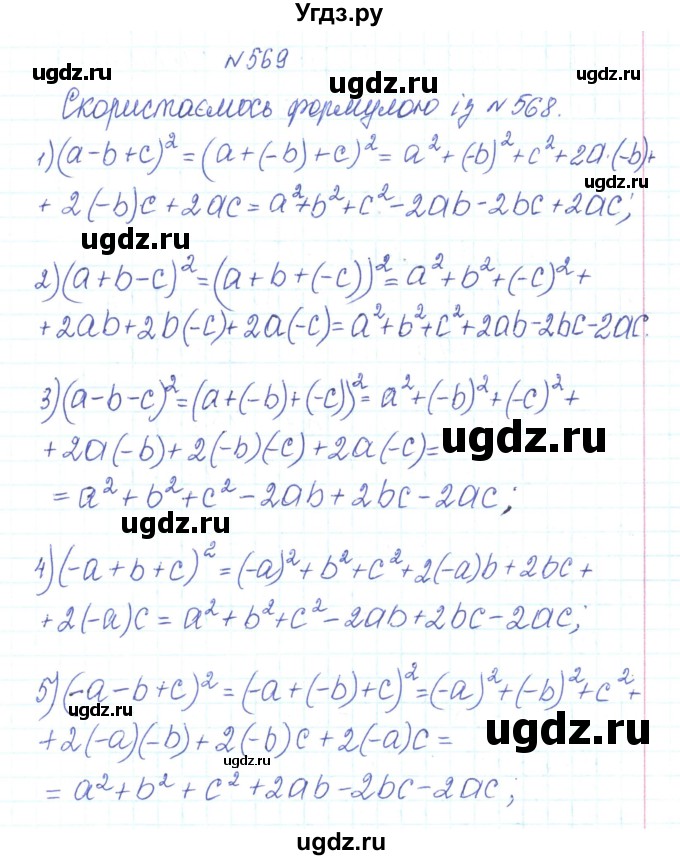 Угдз.ру
№569
ugdz.ru ugdz.ru
Скористаємось формулою із №568.
ugdz.ru
1) (a-b+c)² = (a+(-b)+c)² = a²+(-b)²+c²+2a·(-b)+
ugdz.ru
+ 2(-b)c+2ac = a²+b²+c²-2ab-2bc+2ac;
ugdz.ru
2) (a+b-c)² = (a+b+(-c))² = a²+b²+(-c)²+
+2ab+2b(-c)+2a(-c) = a²+b²+c²+2ab-2bc-2ac.
ugdz.ru
3) (a-b-c)² = (a+(-b)+(-c))² = a²+(-b)²+(-c)²+
ugdz.ru
+2a(-b)+2(-b)(-c)+2a(-c) =
= a²+b²+c²-2ab+2bc-2ac;
ugdz.ru
4) (-a+b+c)² = (-a)²+b²+c²+2(-a)b+2bc+
+2(-a)c = a²+b²+c²-2ab+2bc-2ac;
ugdz.ru
5) (-a-b+c)² = (-a+(-b)+c)² = (-a)²+(-b)²+c²+
ugdz.ru
+2(-a)(-b)+2(-b)c+2(-a)c =
ugdz.ru ugdz.ru
= a²+b²+c²+2ab-2bc-2ac;
ugdz.ru